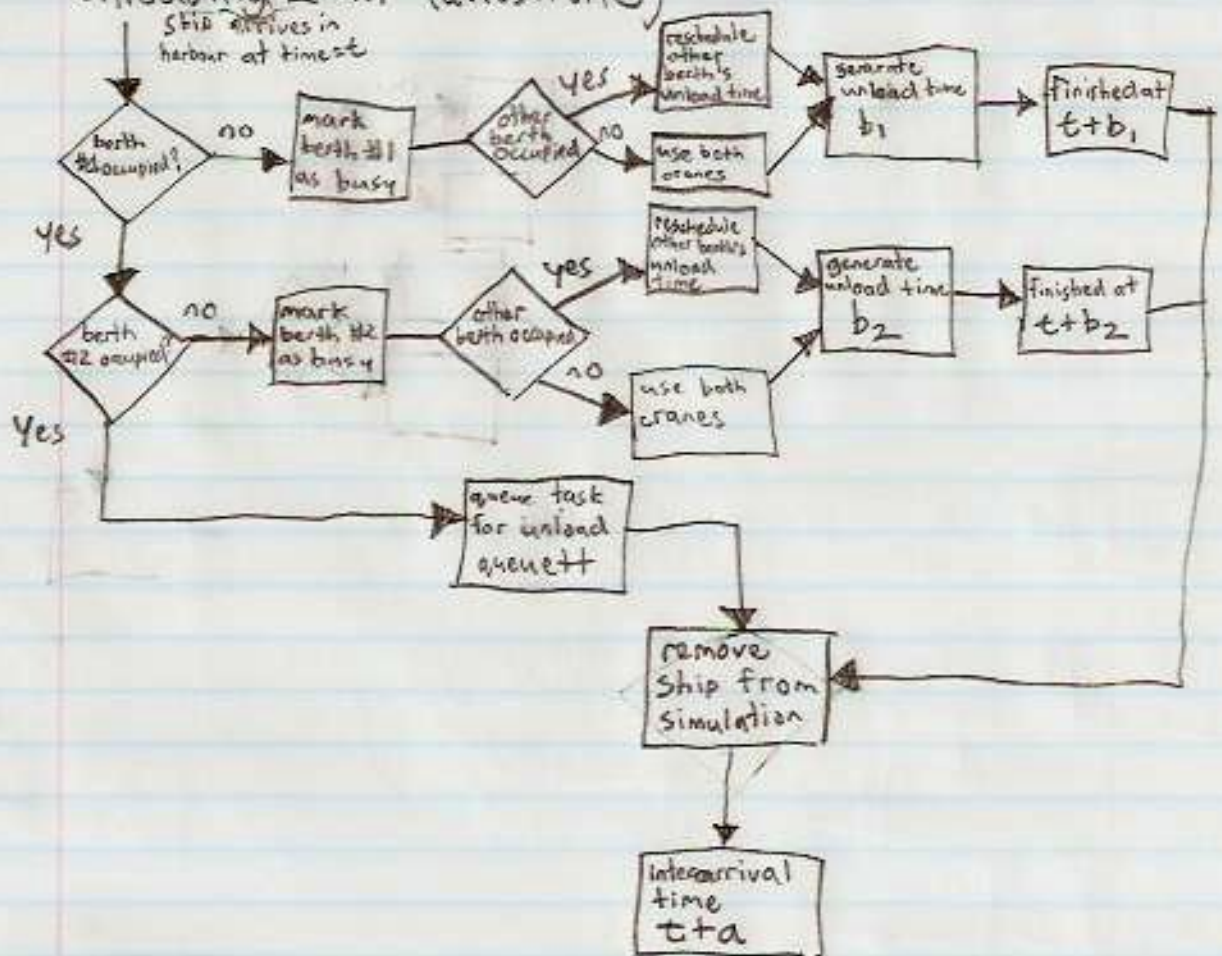 ship arrives in
harbour at time=t
berth
#1 occupied?
no
yes
mark
berth #1
as busy
other
berth
occupied
yes
no
reschedule
other
berth's
unload time
use both
cranes
generate
unload time
b1
finished at
t+b1
berth
#2 occupied?
no
Yes
mark
berth #2
as busy
other
berth occupied
yes
no
reschedule
other berth's
unload
time
use both
cranes
generate
unload time
b2
finished at
t+b2
queue task
for unload
queue++
remove
ship from
simulation
interarrival
time
t+a